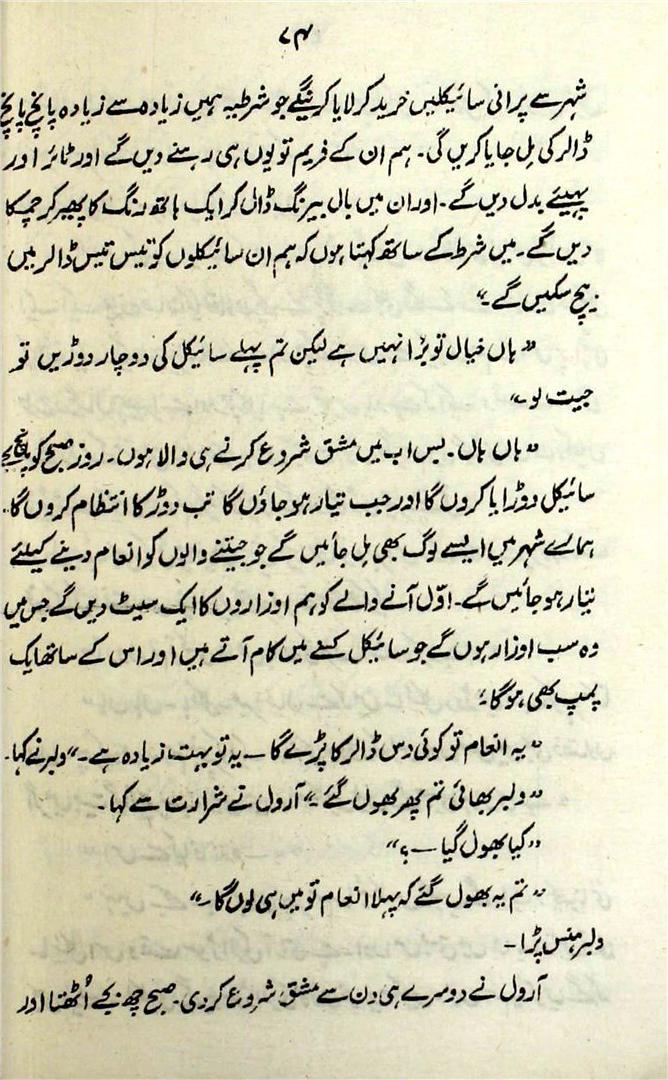 ۷۴
شہر سے پرانی سائیکلیں خرید کر لایا کرینگے جو شرطیہ ہمیں زیادہ سے زیادہ پانچ پانچ
ڈالر کی مل جایا کریں گی۔ ہم ان کے فریم تو یوں ہی رہنے دیں گے اور ٹائر اور
پہیئے بدل دیں گے۔ اور ان میں بال بیرنگ ڈال کر ایک ہاتھ رنگ کا پھیر کر چمکا
دیں گے۔ میں شرط کے ساتھ کہتا ہوں کہ ہم ان سائیکلوں کو تیس تیس ڈالر میں
بیچ سکیں گے۔"
"ہاں خیال تو بُرا نہیں ہے لیکن تم پہلے سائیکل کی دو چار دوڑیں تو
جیت لو۔"
"ہاں ہاں۔ بس اب میں مشق شروع کرنے ہی والا ہوں۔ روز صبح کو پانچ بجے
سائیکل دوڑایا کروں گا اور جب تیار ہو جاؤں گا تب دوڑ کا انتظام کروں گا۔
ہمارے شہر میں ایسے لوگ بھی مل جائیں گے جو جیتنے والوں کو انعام دینے کیلئے
تیار ہو جائیں گے۔ اوّل آنے والے کو ہم اوزاروں کا ایک سیٹ دیں گے جس میں
وہ سب اوزار ہوں گے جو سائیکل کسنے میں کام آتے ہیں اور اس کے ساتھ ایک
پمپ بھی ہو گا۔"
"یہ انعام تو کوئی دس ڈالر کا پڑے گا – یہ تو بہت زیادہ ہے۔" ولبر نے کہا۔
"ولبر بھائی تم پھر بھول گئے۔" آرول نے شرارت سے کہا۔
"کیا بھول گیا –؟"
"تم یہ بھول گئے کہ پہلا انعام تو میں ہی لوں گا۔"
ولبر ہنس پڑا –
آرول نے دوسرے ہی دن سے مشق شروع کر دی۔ صبح چھ بجے اُٹھتا اور